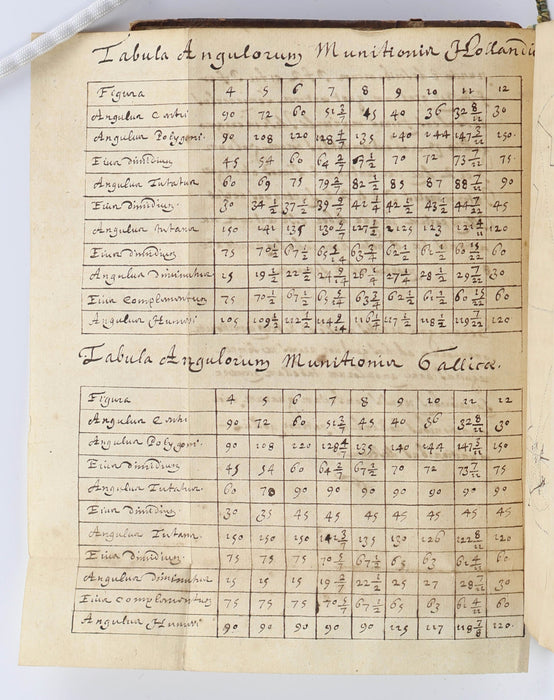 Tabula Angulorum Munitionis Hollandic
Figura 4 5 6 7 8 9 10 11 12
Angulus Centri 90 72 60 51 3/7 45 40 36 32 8/11 30
Angulus Polygoni 90 108 120 128 4/7 135 140 144 147 3/11 150
Eius Dimidium 45 54 60 64 2/7 67 1/2 70 72 73 7/11 75
Angulus Tutatus 60 69 75 79 2/7 82 1/2 85 87 88 7/11 90
Eius Dimidium 30 34 1/2 37 1/2 39 9/14 41 1/4 42 1/2 43 1/2 44 7/22 45
Angulus Tutans 150 141 135 130 5/7 127 1/2 125 123 121 4/11 120
Eius Dimidium 75 70 1/2 67 1/2 65 5/14 63 3/4 62 1/2 61 1/2 60 15/22 60
Angulus Diminutus 15 19 1/2 22 1/2 24 9/14 26 1/4 27 1/4 28 1/2 29 7/22 30
Eius Complementum 75 70 1/2 67 1/2 65 5/14 63 3/4 62 1/2 61 1/2 60 15/22 60
Angulus Humeri 105 109 1/2 112 1/2 114 9/14 116 1/4 117 1/2 118 1/2 119 7/22 120
Tabula Angulorum Munitionis Gallicæ.
Figura 4 5 6 7 8 9 10 11 12
Angulus Centri 90 72 60 51 3/7 45 40 36 32 8/11 30
Angulus Polygoni 90 108 120 128 4/7 135 140 144 147 3/11 150
Eius Dimidium 45 54 60 64 2/7 67 1/2 70 72 73 7/11 75
Angulus Tutatus 60 70 90 90 90 90 90 90 90
Eius Dimidium 30 35 45 45 45 45 45 45 45
Angulus Tutans 150 150 150 141 3/7 135 130 126 122 8/11 120
Eius Dimidium 75 75 75 70 5/7 67 1/2 65 63 61 4/11 60
Angulus Diminutus 15 15 15 19 2/7 22 1/2 25 27 28 7/11 30
Eius Complementum 75 75 75 70 5/7 67 1/2 65 63 61 4/11 60
Angulus Humeri 90 90 90 90 90 115 117 118 7/8 120